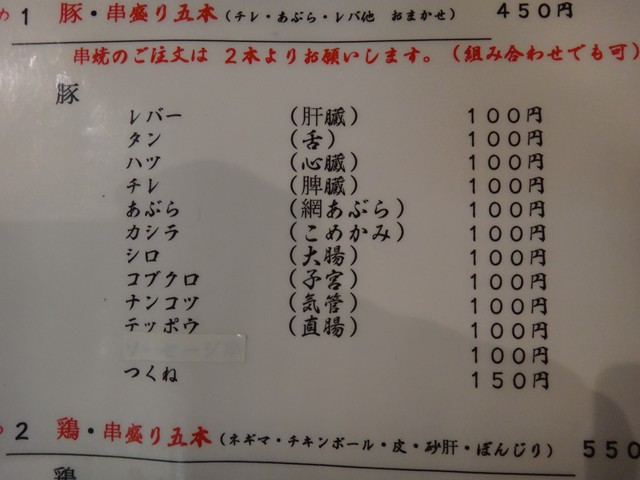 1 豚・串盛り五本（チレ・あぶら・レバ他 おまかせ） 450円
串焼のご注文は 2本よりお願いします。（組み合わせでも可）
豚
レバー （肝臓） 100円
タン （舌） 100円
ハツ （心臓） 100円
チレ （脾臓） 100円
あぶら （網あぶら） 100円
カシラ （こめかみ） 100円
シロ （大腸） 100円
コブクロ （子宮） 100円
ナンコツ （気管） 100円
テッポウ （直腸） 100円
100円
つくね 150円
2 鶏・串盛り五本（ネギマ・チキンボール・皮・砂肝・ぼんじり） 550
鶏